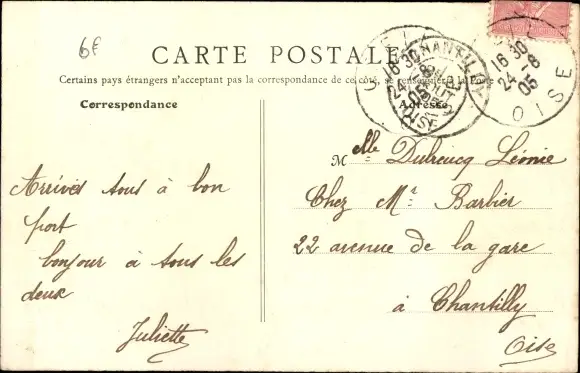 6€
CARTE POSTALE
Certains pays étrangers n'acceptant pas la correspondance de ce côté, se renseigner à la Poste
Correspondance
Adresse
Arrivés tous à bon
port
bonjour à tous les
deux
Juliette
Melle Dubreucq Léonie
Chez Mr Barbier
22 avenue de la gare
à Chantilly
Oise
CHANTILLY
OISE
16 30
24 - 8
05
OISE